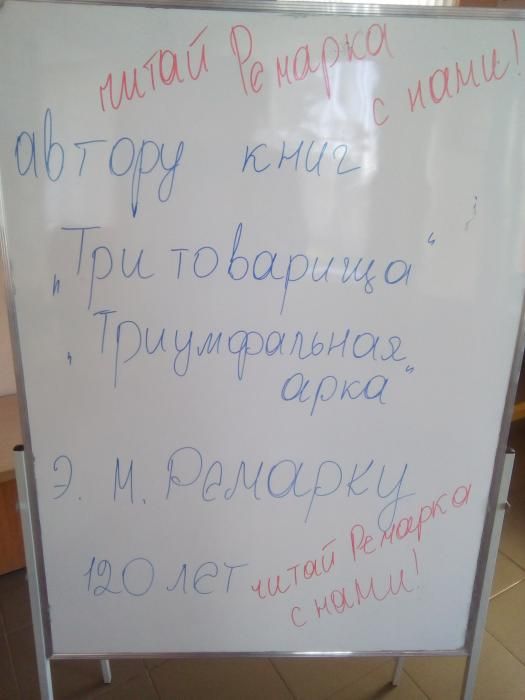 читай Ремарка
с нами!
автору книг
„Три товарища“
„Триумфальная
арка“
Э. М. Ремарку
120 лет
читай Ремарка
с нами!